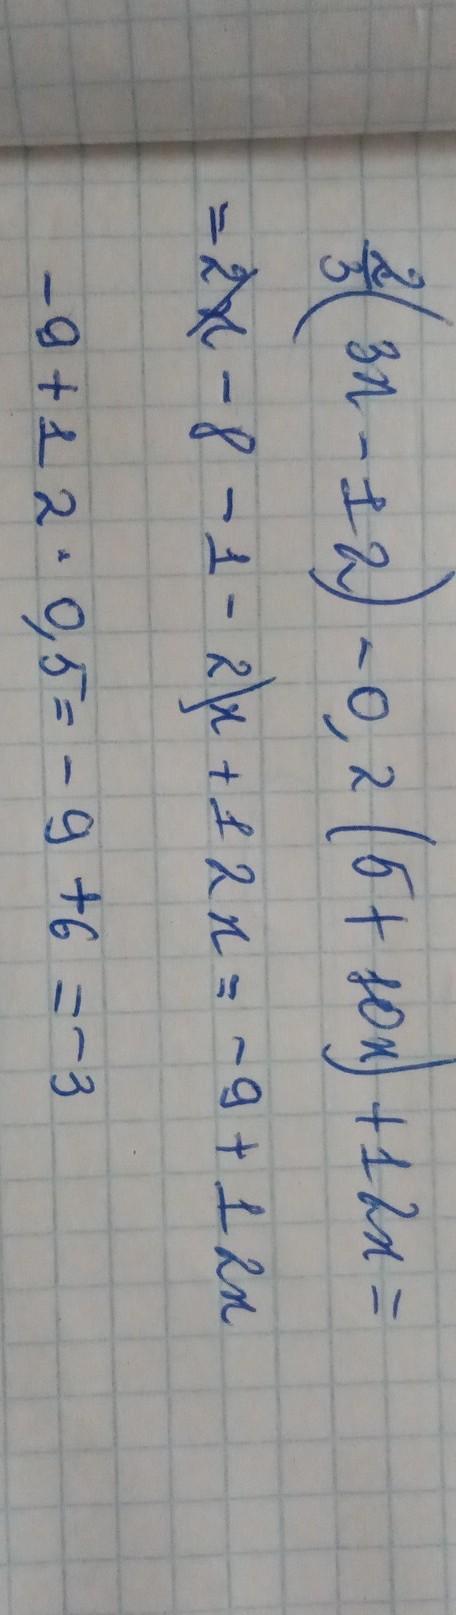 2/3(3x-12)-0,2(5+10x)+12x=
=2x-8-1-2x+12x=-9+12x
-9+12·0,5=-9+6=-3